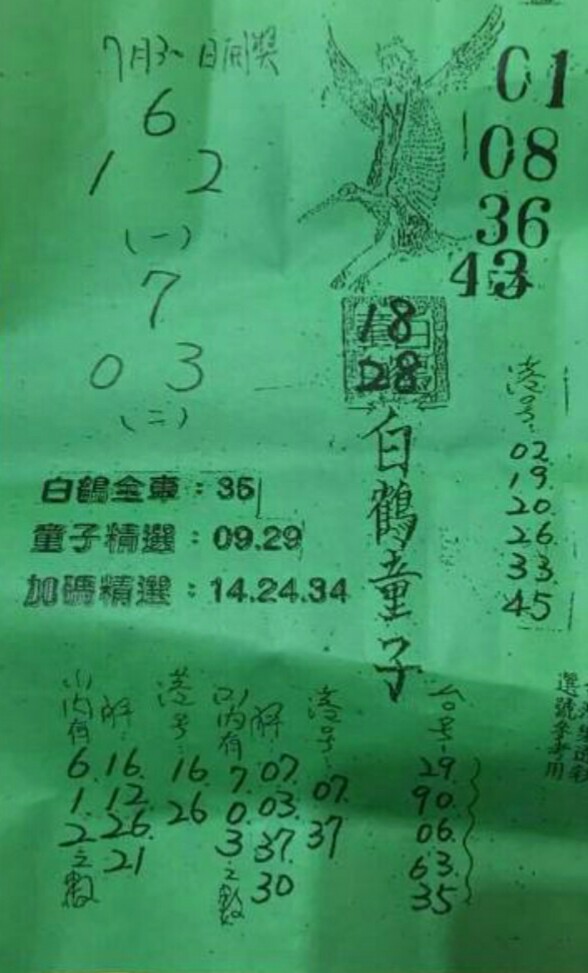 7月30日開獎
6
1 2
(一)
7
0 3
(二)
01
08
36
43
18
28
白鶴童子
港号:
02
19
20
26
33
45
白鶴金東:35
童子精選:09.29
加碼精選:14.24.34
(一)內有
6.
1.
2
之數
解:
16.
12.
26.
21
港号:
16.
26
(二)內有
7.
0.
3
之數
解:
07.
03.
37.
30
港号:
07.
37
台号:
29.
90.
06.
63.
35
選號參考用